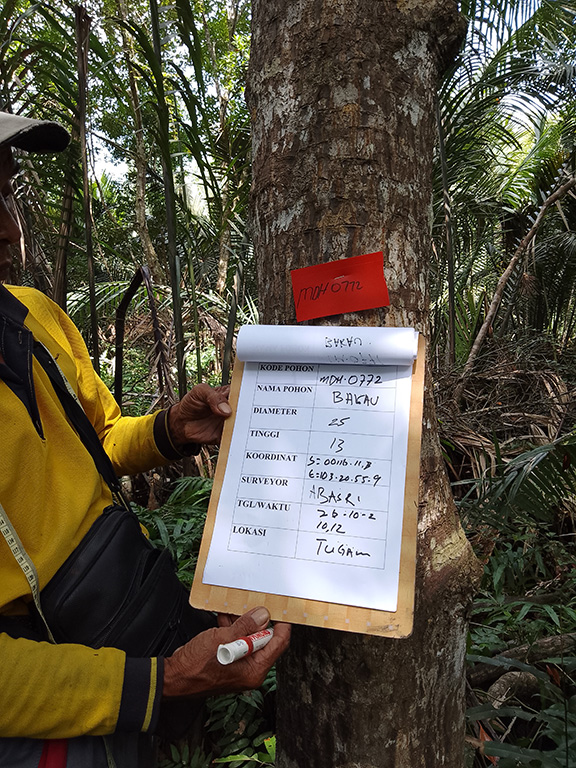 MDH 0772
BAKAU
KODE POHON MDH-0772
NAMA POHON BAKAU
DIAMETER 25
TINGGI 13
KOORDINAT S=00116.11.8
E=103.20.55.9
SURVEYOR ABASRI
TGL/WAKTU 26-10-2
10,12
LOKASI TUGAM